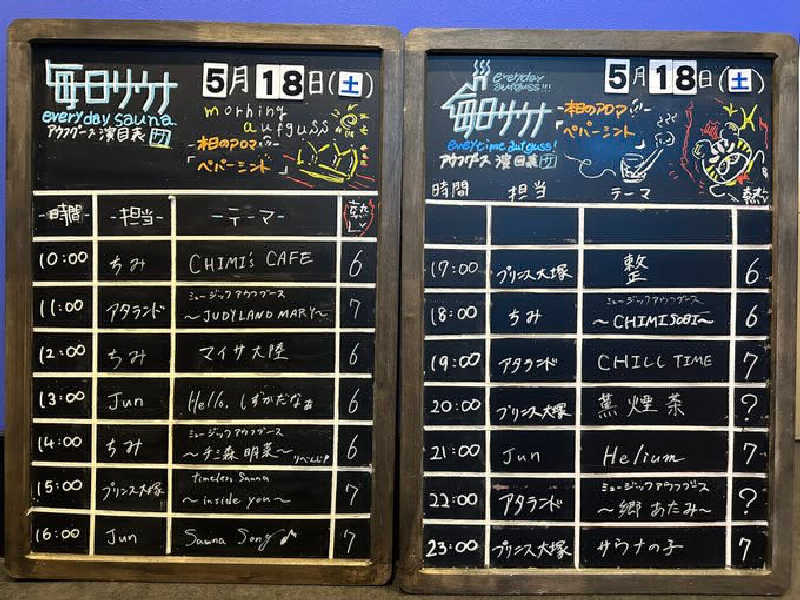 毎日サウナ
5月18日(土)
everyday sauna
morning
aufguss
アウフグース演目表
本日のアロマ
ペパーミント
-時間- -担当- -テーマ- 熱レベ
10:00 ちみ CHIMI's CAFE 6
ミュージックアウフグース
11:00 アタランド 〜JUDYLAND MARY〜 7
12:00 ちみ マイサ大陸 6
13:00 Jun Hello. しずかだなぁ 6
ミュージックアウフグース
14:00 ちみ 〜チミ森 明菜〜 りべんじ 6
timeless Sauna
15:00 プリンス大塚 〜inside you〜 7
16:00 Jun Sauna Song♪ 7
everyday
aufguss!!!
毎日サウナ
5月18日(土)
本日のアロマ
ペパーミント
everytime aufguss!
アウフグース 演目表
時間 担当 テーマ 熱
17:00 プリンス大塚 整 6
ミュージックアウフグース
18:00 ちみ 〜CHIMISOBI〜 6
19:00 アタランド CHILL TIME 7
20:00 プリンス大塚 薫煙茶 ?
21:00 Jun Helium 7
ミュージックアウフグース
22:00 アタランド 〜郷 あたみ〜 ?
23:00 プリンス大塚 サウナの子 7